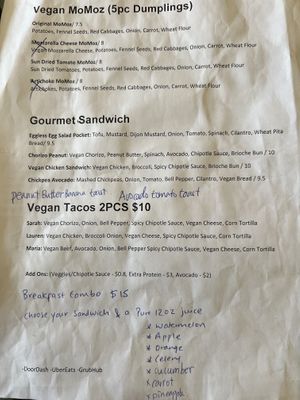 Vegan MoMoz (5pc Dumplings)
Original MoMoz/ 7.5
Potatoes, Fennel Seeds, Red Cabbages, Onion, Carrot, Wheat Flour
Mozzarella Cheese MoMoz/ 8
Vegan Mozzarella Cheese, Potatoes, Fennel Seeds, Red Cabbages, Onion, Carrot, Wheat Flour
Sun Dried Tomato MoMoz/ 8
Sun Dried Tomatoes, Potatoes, Fennel Seeds, Red Cabbages, Onion, Carrot, Wheat Flour
Artichoke MoMoz/ 8
Artichokes, Potatoes, Fennel Seeds, Red Cabbages, Onion, Carrot, Wheat Flour
Gourmet Sandwich
Eggless Egg Salad Pocket: Tofu, Mustard, Dijon Mustard, Onion, Tomato, Spinach, Cilantro, Wheat Pita
Bread/ 9.5
Chorizo Peanut: Vegan Chorizo, Peanut Butter, Spinach, Avocado, Chipotle Sauce, Brioche Bun / 10
Vegan Chicken Sandwich: Vegan Chicken, Broccoli, Spicy Chipotle Sauce, Brioche Bun / 10
Chickpea Avocado: Mashed Chickpeas, Onion, Tomato, Bell Pepper, Cilantro, Vegan Bread / 9.5
peanut Butter Banana toast Avocado tomato toast
Vegan Tacos 2PCS $10
Sarah: Vegan Chorizo, Onion, Bell Pepper, Spicy Chipotle Sauce, Vegan Cheese, Corn Tortilla
Lauren: Vegan Chicken, Broccoli Onion, Vegan Cheese, Spicy Chipotle Sauce, Corn Tortilla
Maria: Vegan Beef, Avocado, Onion, Bell Pepper Spicy Chipotle Sauce, Vegan Cheese, Corn Tortilla
Add Ons: (Veggies/Chipotle Sauce - $0.8, Extra Protein - $3, Avocado - $2)
Breakfast Combo $15
choose your Sandwich & a Pure 12oz juice
* Watermelon
* Apple
* Orange
* Celery
* Cucumber
* carrot
* pineapple
-DoorDash -UberEats -GrubHub